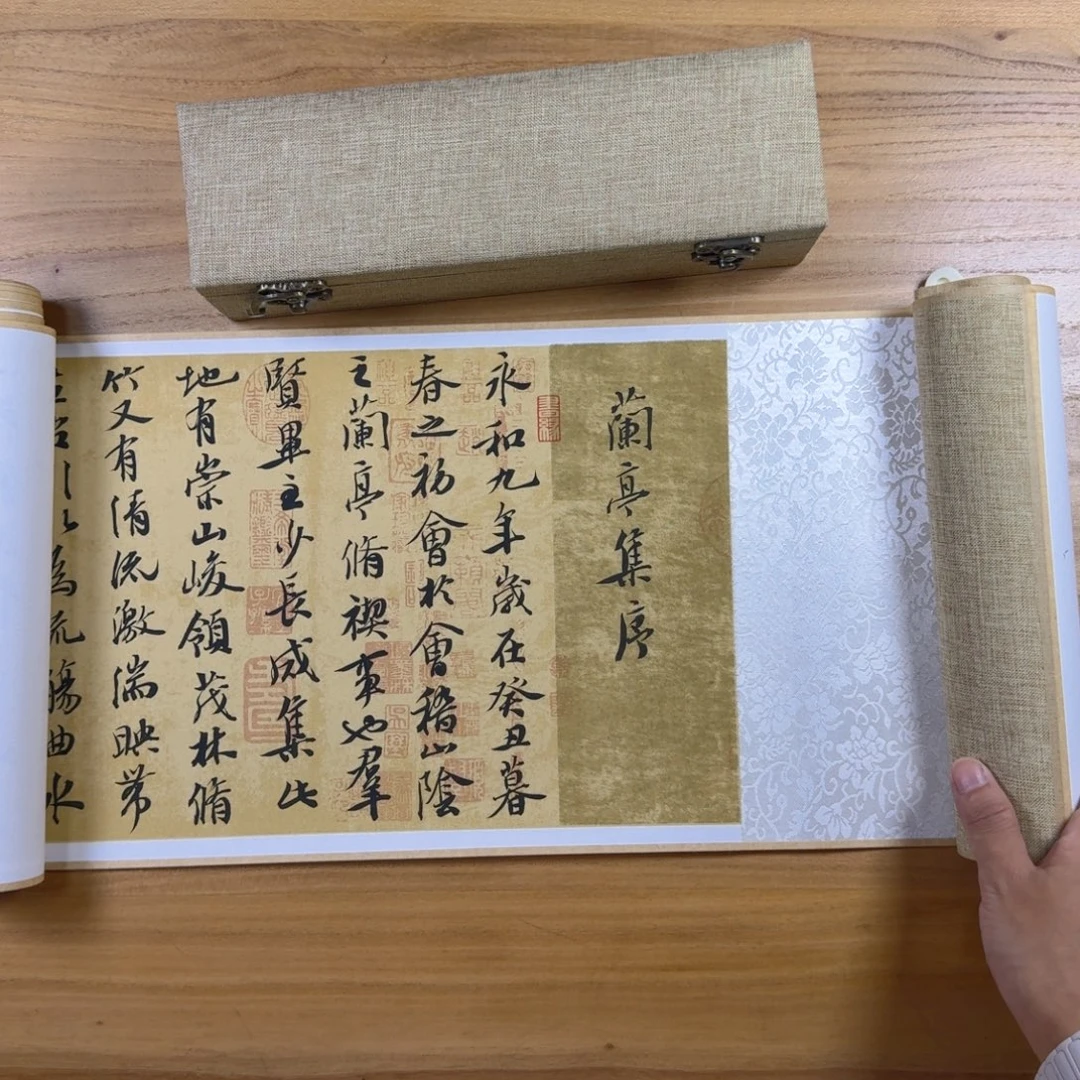 蘭亭集序
永和九年歲在癸丑暮
春之初會於會稽山陰
之蘭亭脩禊事也羣
賢畢至少長咸集此
地有崇山峻領茂林脩
竹又有清流激湍映帶
左右引以為流觴曲水